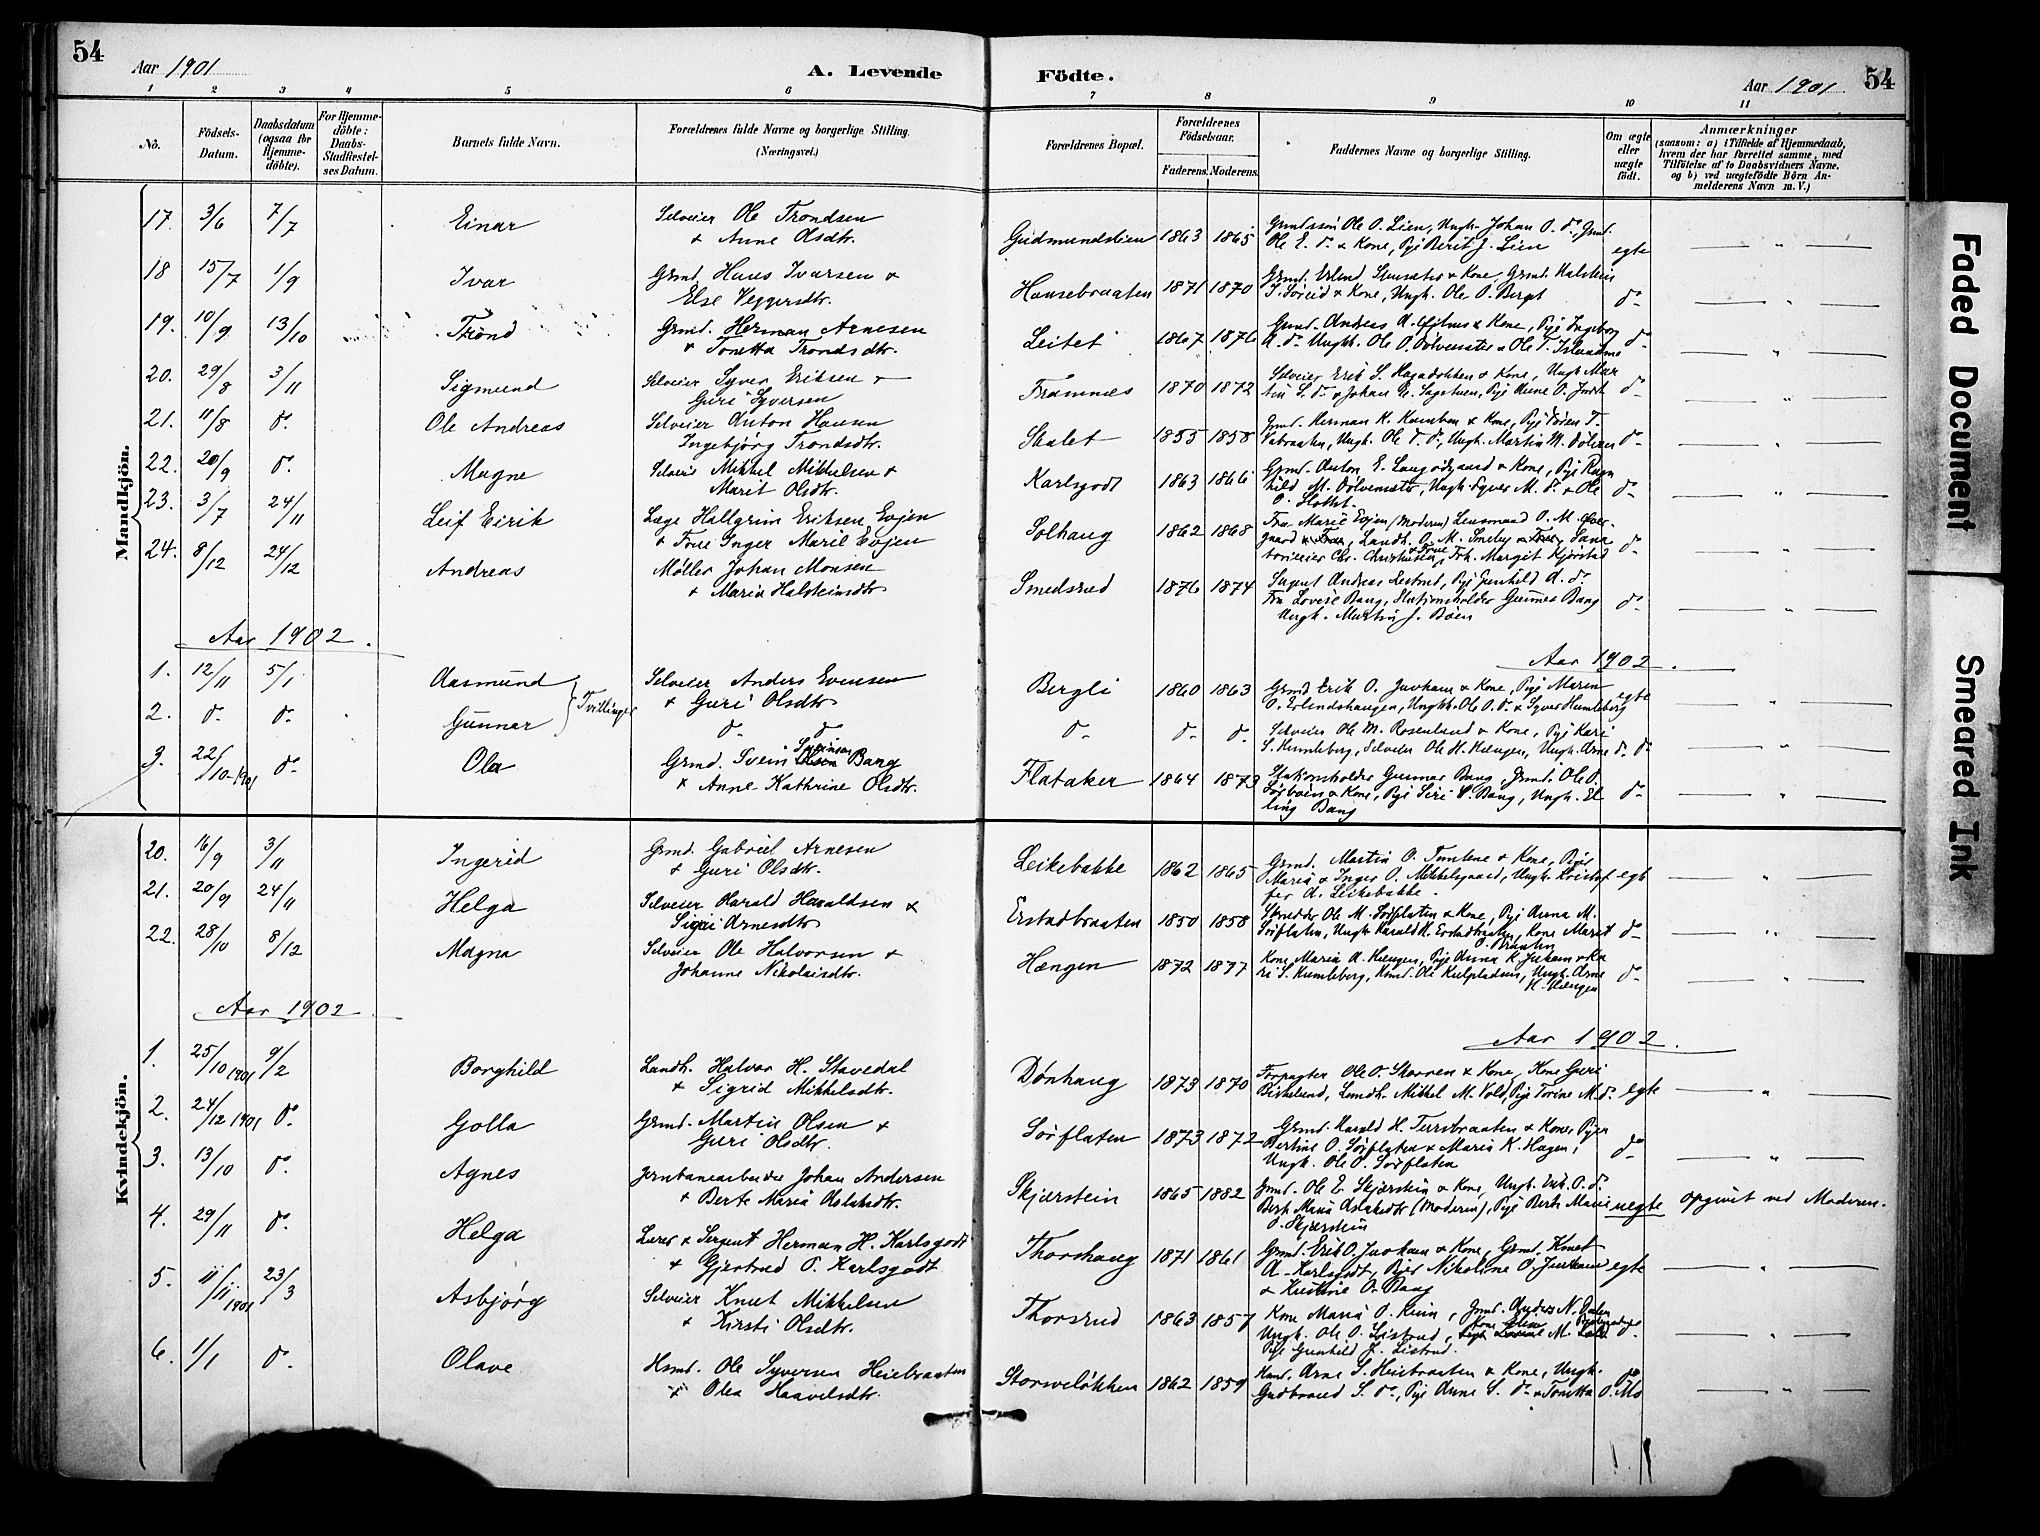 54
Aar 1901
A. Levende
Födte.
Aar 1901
54
1 2 3 4 5 6 7 8 9 10 11
No.
Födsels-Datum.
Daabsdatum (ogsaa for Hjemmedöbte).
For Hjemmedöbte: Daabs-Stadfæstelses Datum.
Barnets fulde Navn.
Forældrenes fulde Navne og borgerlige Stilling.
(Næringsvei.)
Forældrenes Bopæl.
Forældrenes Födselsaar.
Faderens. Moderens.
Faddernes Navne og borgerlige Stilling.
Om ægte eller uægte födt.
Anmærkninger
(saasom: a) i Tilfælde af Hjemmedaab,
hvem der har forrettet samme, med
Tilföielse af to Daabsvidners Navne,
og b) ved uægtefödte Börn Anmelderens Navn m. V.)
Mandkjön.
17. 3/6 7/7 Einar Selveier Ole Trondsen
& Anne Olsdtr. Gudmundslien 1863 1865 Grmdssön Ole O. Lien, Ungk. Johan O. do, Grmd.
Ole E. do & Kone, Pige Berit J. Lien egte
18 15/7 1/9 Ivar Grmd. Hans Ivarsen &
Else Veggersdtr. Hansebraaten 1871 1870 Grmd. Erlend & Kone, Grmd. Halstein
& Kone, Ungk. Ole O. Bergt do
19. 10/9 13/10 Trond Grmd. Herman Arnesen
& Tonetta Trondsdtr. Leitet 1867 1876 Grmd. Andreas A. & Kone, Pige Ingeborg
A. do Ungkk. Ole O. & Ole T. do
20. 29/8 3/11 Sigmund Selveier Syver Eriksen &
Guri Syversen Framnes 1870 1872 Selveier Erik S. Hagadokken & Kone, Ungk. Mar
tin S. do & Johan E. Sagstuen, Pige Anne O. do
21. 11/8 do Ole Andreas Selveier Anton Hansen
Ingebjörg Trondsdtr. Skalet 1855 1858 Grmd. Herman K. & Kone, Pige Tören T.
Ungk. Ole T. do, Ungk. Martin M. do
22. 20/9 do Magne Selveier Mikkel Mikkelsen &
Marit Olsdtr. Karlsgodt 1863 1866 Grmd. Anton E. & Kone, Pige Ragn
hild M. Ungk. Syver M. do & Ole
O. Slottet. do
23. 3/7 24/11 Leif Eirik Læge Hallgrim Eriksen Evjen
& Frue Inger Marie Evjen Solhaug 1862 1868 Fru Marie Evjen (Moderen) Lensmand O. M.
Landh. O. M. Smeby & Frue, Sana
Chr. Christensen & Frue, Frk. Margit Kjörstad do
24. 8/12 24/12 Andreas Möller Johan Monsen
& Maria Halsteinsdtr Smedsrud 1876 1874 Sagent Andreas Listrud, Pige Gunhild A. do
Fru Lovise Bang, Stationsholder Gunnar Bang
Ungk. Martin J. Böen do
Aar 1902.
Aar 1902.
1. 12/11 5/1 Aasmund } Tvillinger Selveier Anders Evensen
& Guri Olsdtr Bergli 1860 1863 Grmd Erik O. Juvkam & Kone, Pige Maren
O. Erlendshaugen, Ungkk. Ole O. do & Syver Humleberg egte
2. do do Gunnar do do do do do Selveier Ole M. Rosenlund & Kone, Pige Kari
S. Humleberg, Selveier Ole H. Hængen, Ungk. Arne do do
3. 22/10-1901 do Ola Grmd. Svein Olsen Sveinsen Bang
& Anne Kathrine Olsdtr. Flataker 1864 1873 Stationsholder Gunnar Bang, Grmd. Ole O.
Sörböen & Kone, Pige Siri O. Bang, Ungk. El
ling Bang do
Kvindekjön.
20. 16/9 3/11 Ingerid Grmd. Gabriel Arnesen
& Guri Olsdtr. Leikebakke 1862 1865 Grmd. Martin O. Tomlene & Kone, Piger
Maria & Inger O. Mikkelsgaard, Ungk. Kristof
fer A. Leikebakke. egte
21. 20/9 24/11 Helga Selveier Harald Haraldsen &
Sigri Arnesdtr Erstadbraaten 1850 1858 Skrædder Ole M. Sörflaten & Kone, Pige Anna M.
Sörflaten, Ungk. Harald H. Erstadbraaten, Kone Marit
O. Braaten do
22. 28/10 8/12 Magna Selveier Ole Halvorsen &
Johanne Nikolaisdtr. Hængen 1872 1877 Kone Maria A. Hængen, Pige Anna K. Juvkam & Ka
ri S. Humleberg, Grmd. Ole Ungk. Arne
H. Hængen do
Aar 1902
Aar 1902.
1. 25/10 1901 9/2 Borghild Landh. Halvor H. Stavedal
& Sigrid Mikkelsdtr. Dönhaug 1873 1870 Forpagter Ole O. Skarren & Kone, Kone Guri
Birkelund, Landh. Mikkel M. Vold, Pige Torine M. do egte
2. 24/12 1901 do Golla Grmd. Martin Olsen &
Guri Olsdtr. Sörflaten 1873 1872 Grmd. Harald H. & Kone, Piger
Bertine O. Sörflaten & Maria K. Hagen,
Ungk. Ole O. Sörflaten do
3. 13/10 do Agnes Jernbanearbeider Johan Andersen
& Berte Maria Aslaksdtr. Skjærstein 1865 1882 Grmd. Ole E. Skjærstein & Kone, Ungk. Erik O. do
Berte Maria Aslaksdtr (Moderen), Pige Berte Marie
O. Skjærstein uegte opgivet ved Moderen.
4. 29/11 do Helga Lærer & Sergent Herman H. Karlsgodt
& Gjertrud O. Karlsgodt Thorshaug 1871 1861 Grmd. Erik O. Juvkam & Kone, Grmd. Knut
A. Karlsgodt, Piger Nikoline O. Juvkam
& Kristine O. Bang egte
5. 11/11 1901 23/3 Asbjörg Selveier Knut Mikkelsen
& Kirsti Olsdtr. Thorsrud 1863 1857 Kone Maria O. Grmd. Anders N. Dalen
Ungk. Ole O. Listrud,
Pige Gunhild J. Listrud. do
6. 1/1 do Olave Hsmd. Ole Syversen Heiebraaten
& Olea Haavelsdtr. Storveslökken 1862 1859 Hsmd. Arne S. Heiebraaten & Kone, Ungk.
Gudbrand S. do, Pige Anne S. do & Tonetta O. Mo do
Faded Document
Smeared Ink